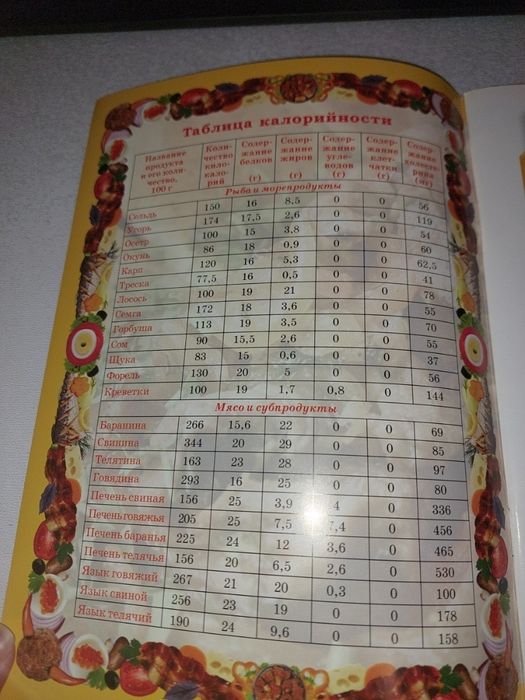 Таблица калорийности
Название продукта и его количество, 100 г Количество килокалорий Содержание белков (г) Содержание жиров (г) Содержание углеводов (г) Содержание клетчатки (г) Содержание холестерина (мг)
Рыба и морепродукты
Сельдь 150 16 8,5 0 0 56
Угорь 174 17,5 2,6 0 0 119
Осетр 100 15 3,8 0 0 54
Окунь 86 18 0,9 0 0 60
Карп 120 16 5,3 0 0 62,5
Треска 77,5 16 0,5 0 0 41
Лосось 100 19 21 0 0 78
Семга 172 18 3,6 0 0 55
Горбуша 113 19 3,5 0 0 70
Сом 90 15,5 2,6 0 0 55
Щука 83 15 0,6 0 0 37
Форель 130 20 5 0 0 56
Креветки 100 19 1,7 0,8 0 144
Мясо и субпродукты
Баранина 266 15,6 22 0 0 69
Свинина 344 20 29 0 0 85
Телятина 163 23 28 0 0 97
Говядина 293 16 25 0 0 80
Печень свиная 156 25 3,9 4 0 336
Печень говяжья 205 25 7,5 7,4 0 456
Печень баранья 225 24 12 3,6 0 465
Печень телячья 156 20 6,5 2,6 0 530
Язык говяжий 267 21 20 0,3 0 100
Язык свиной 256 23 19 0 0 178
Язык телячий 190 24 9,6 0 0 158